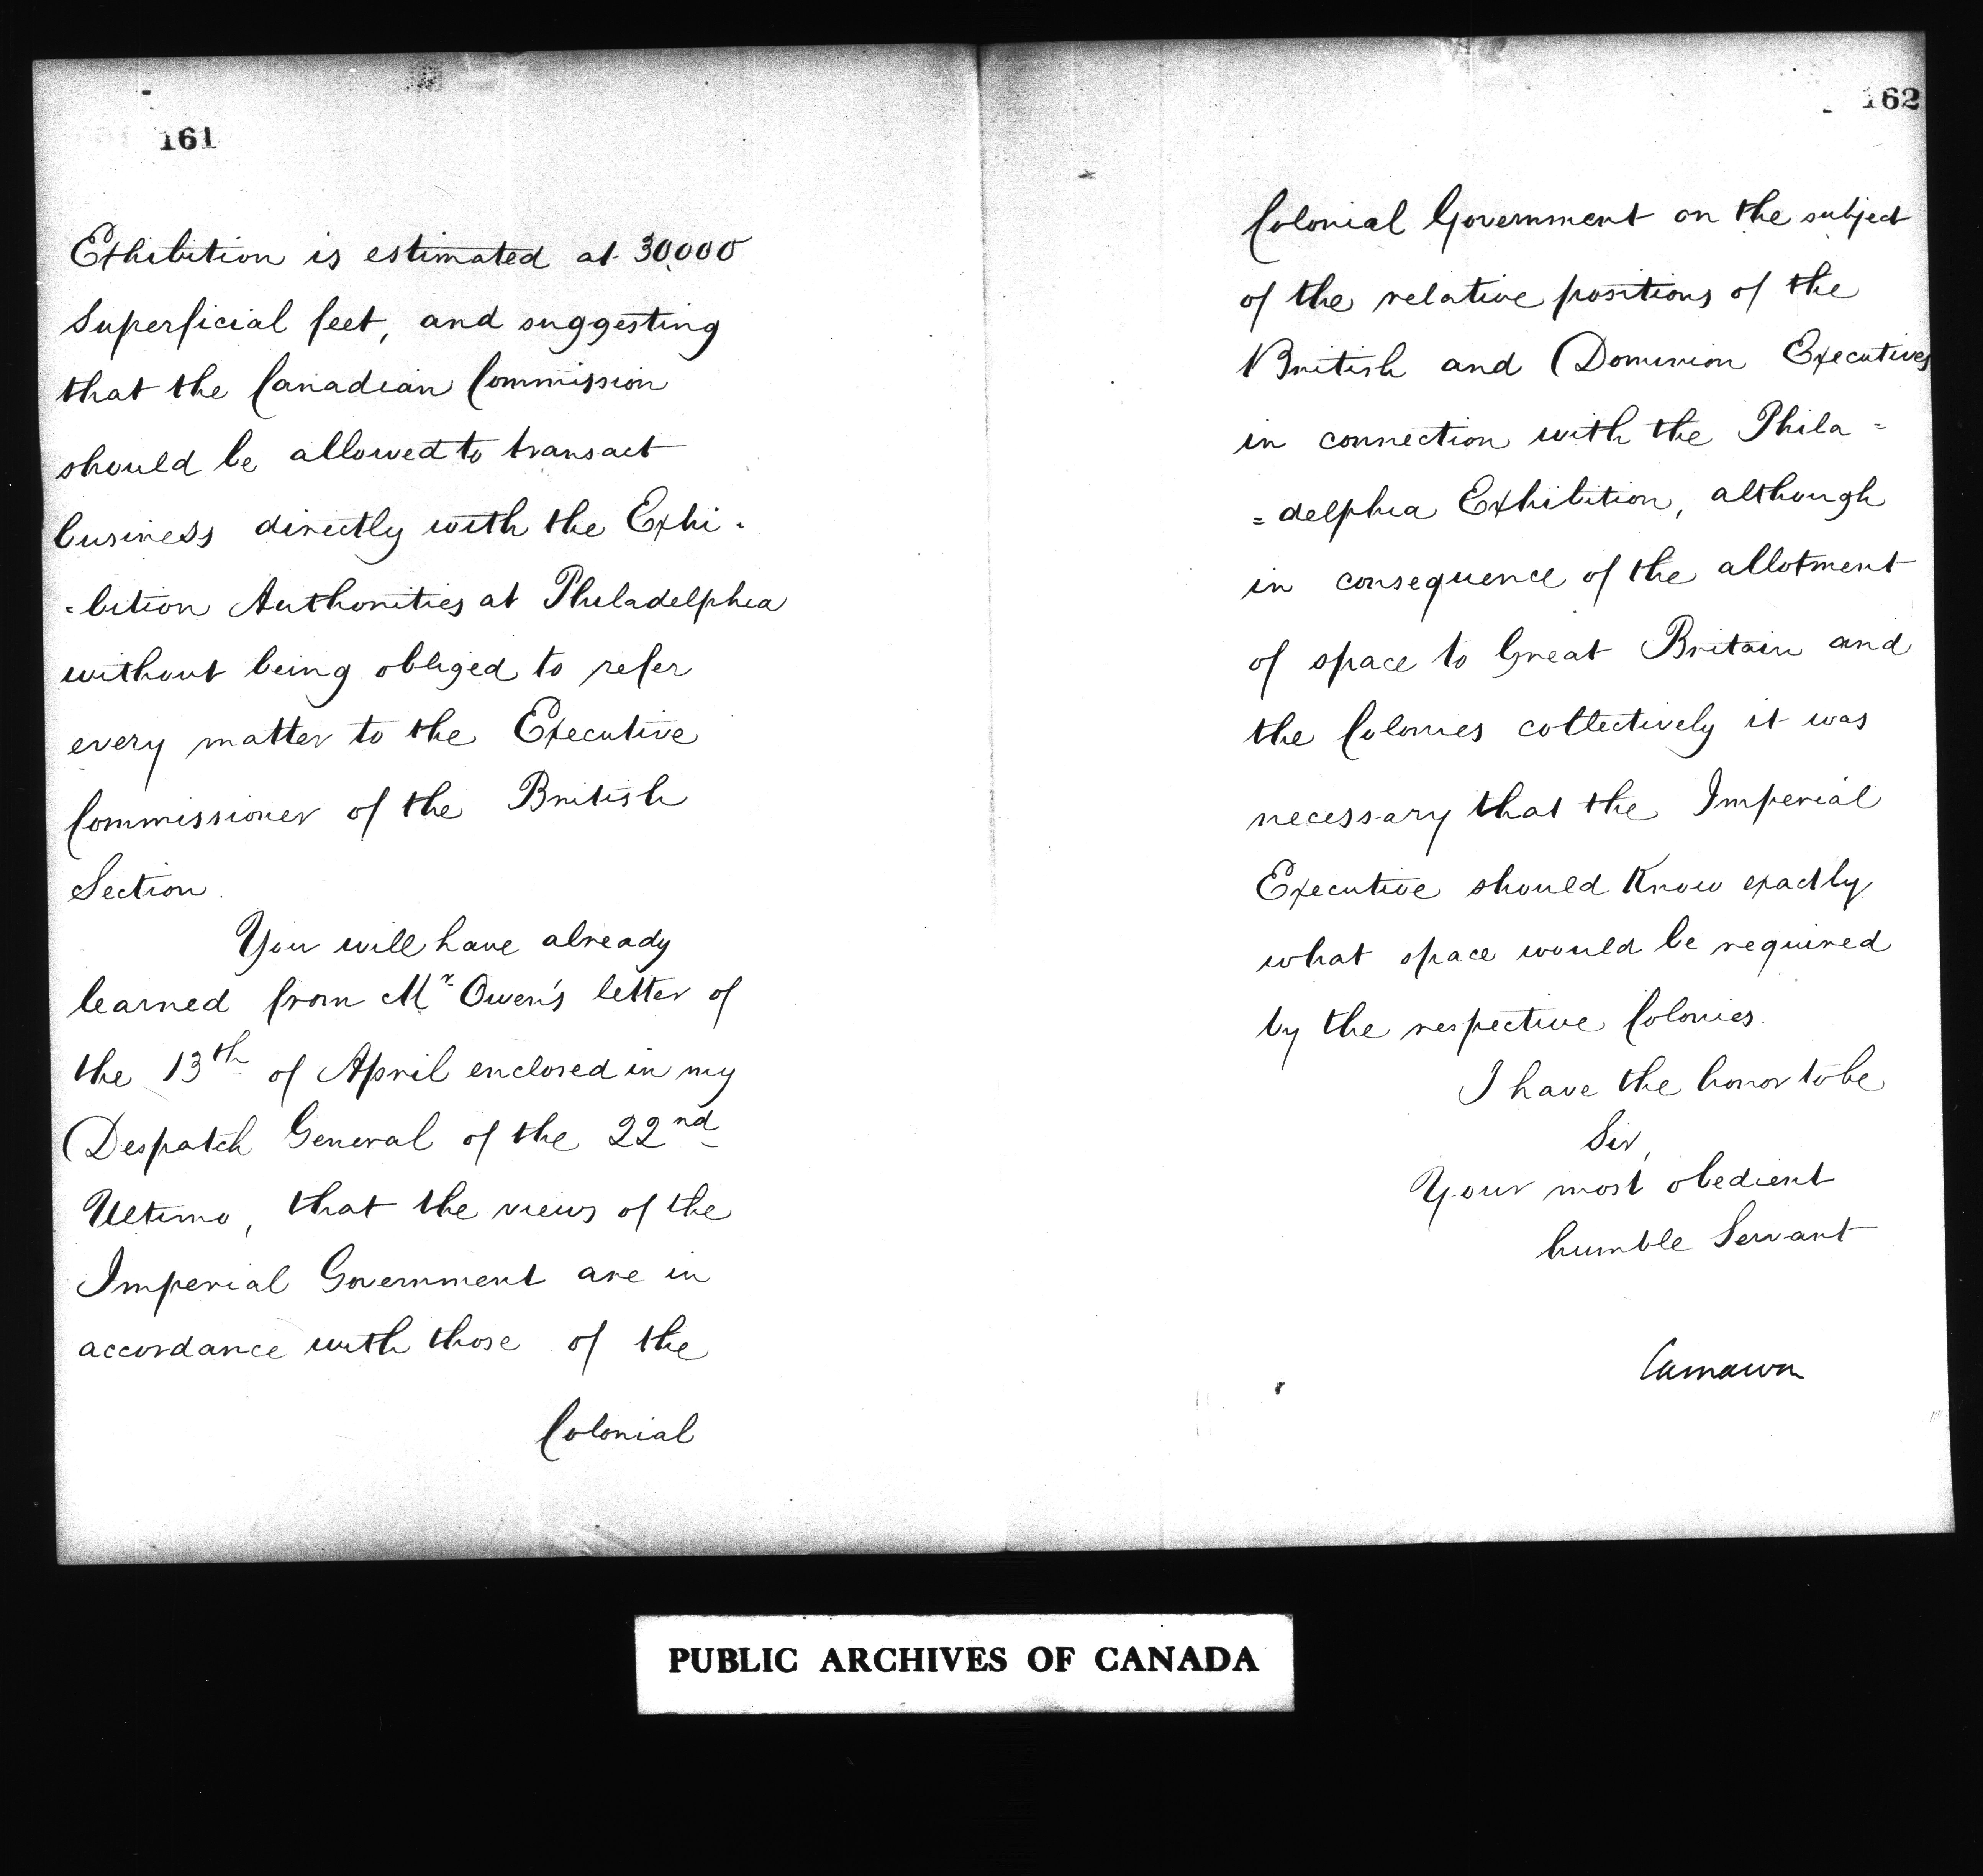 161
Exhibition is estimated at 30,000
Superficial feet, and suggesting
that the Canadian Commission
should be allowed to transact
business directly with the Exhi-
-bition Authorities at Philadelphia
without being obliged to refer
every matter to the Executive
Commissioner of the British
Section.
You will have already
learned from Mr. Owen's letter of
the 13th of April enclosed in my
Despatch General of the 22nd
Ultimo, that the views of the
Imperial Government are in
accordance with those of the
Colonial
162
Colonial Government on the subject
of the relative positions of the
British and Dominion Executives
in connection with the Phila=
=delphia Exhibition, although
in consequence of the allotment
of space to Great Britain and
the Colonies collectively it was
necessary that the Imperial
Executive should know exactly
what space would be required
by the respective Colonies.
I have the honor to be
Sir,
Your most obedient
humble Servant
Carnarvon
PUBLIC ARCHIVES OF CANADA